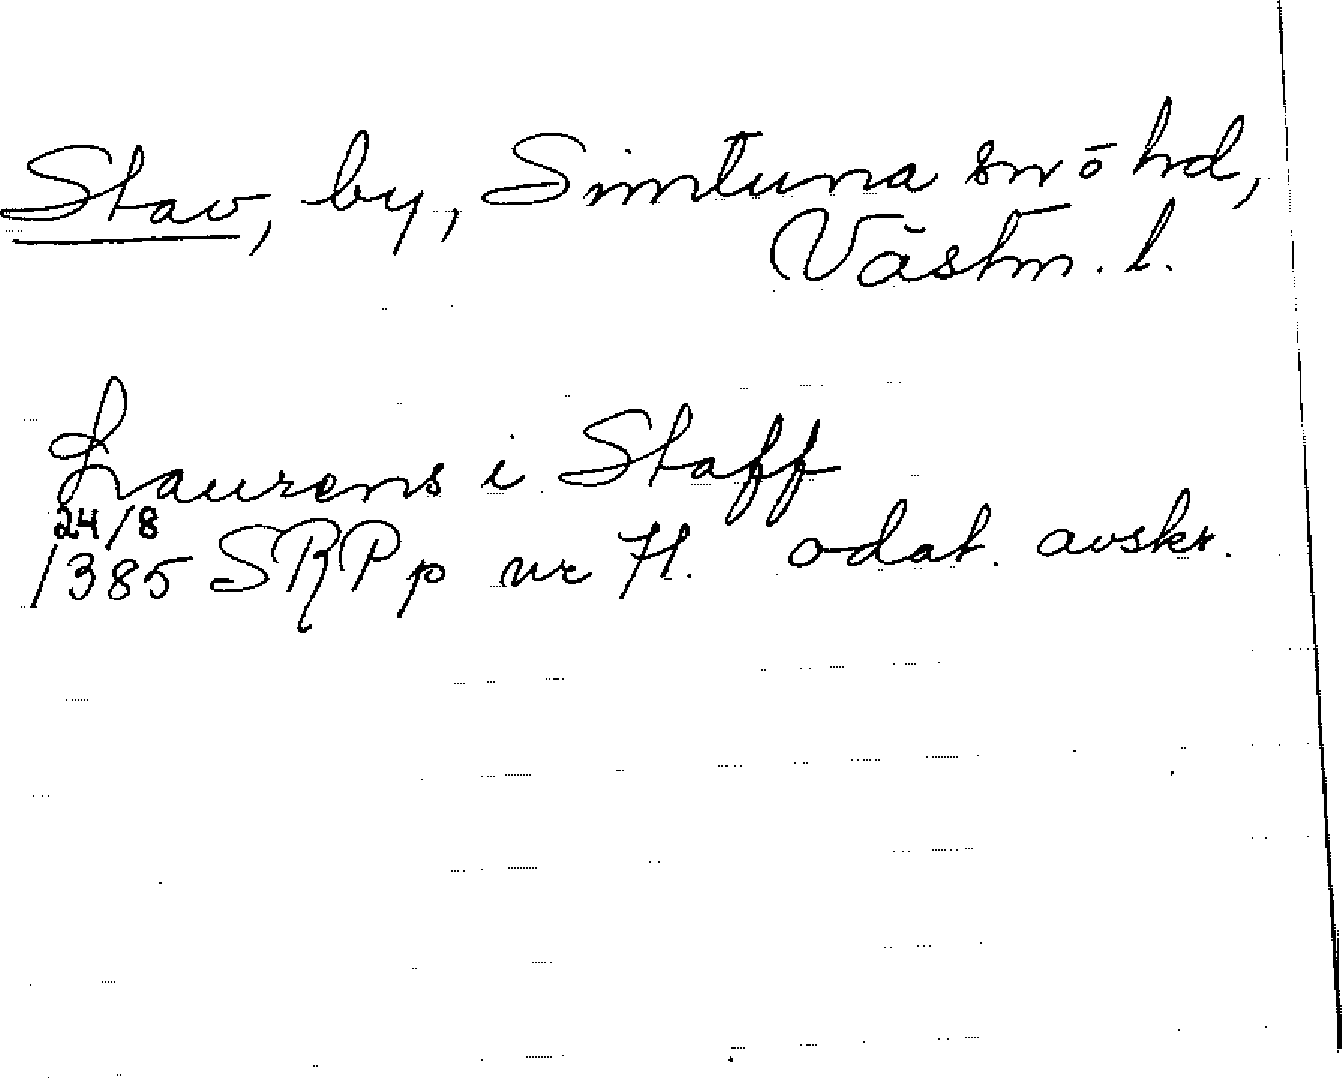 Stav, by, Simtuna sn ō hd,
Västm. l.
Laurens i Staff
24/8
1385 SRPp nr 71. odat. avskr.